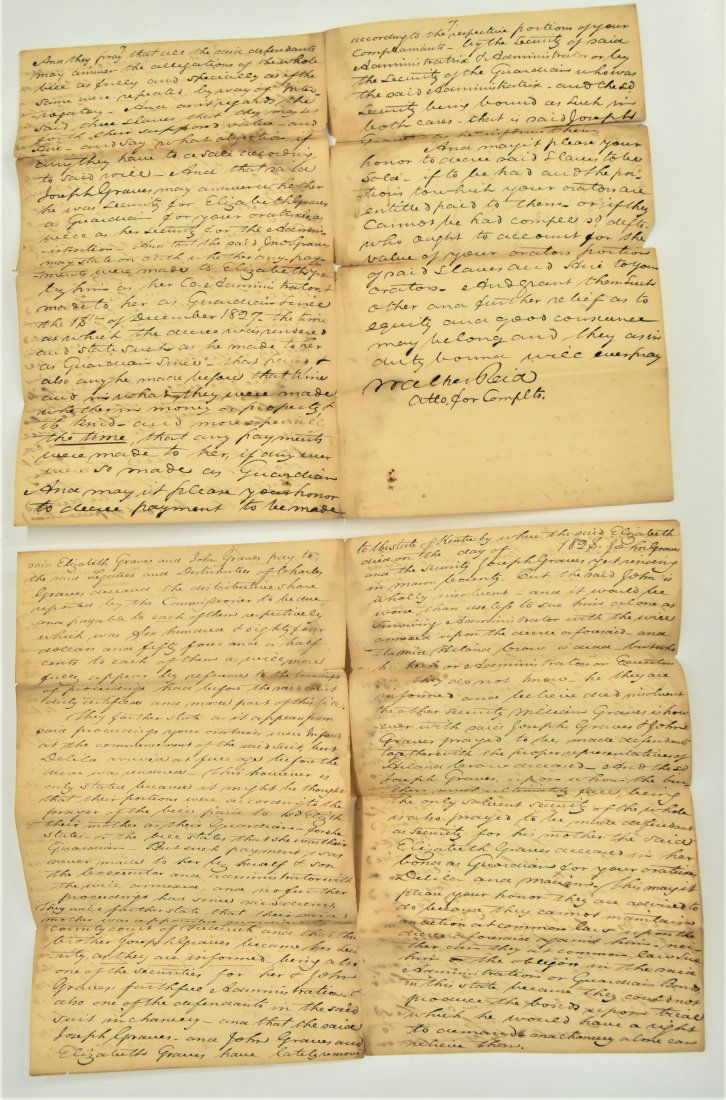 And they pray that all the said defendants
may answer the allegations of the whole
bill as fully and specially as if the
same were repeated by way of Inter-
rogatory - And as it regards the
said three slaves that they may set
forth their supposed value - and
and say what objections if
any they have to a sale according
to said will - And that said
Joseph Graves may answer whether
he was security for Elizabeth Graves
as Guardian for your oratrixes as
well as her security for the adminis
tration - And that the said Jno Graves
may state on oath whether any pay-
ments were made to Elizabeth
by him as her Co. Administrator &
made to her as Guardian since
the 18th of December 1827 the time
at which the decree was rendered
and state such as he made to her
as Guardian since that period &
also any he made before that time
and in what they were made
whether in money or property &
its kind - and more especially
the time, that any payments
were made to her, if any ever
were so made as Guardian
And may it please your honor
to decree payment to be made
according to the respective portions of your
Complainants - by the security of said
Administratrix & Administrator or by
the security of the Guardian who was
the said Administratrix - and the sd
security being bound as such in
both cases - that is said Joseph
And may it please your
honor to decree said slaves to be
sold - if to be had and the por-
tions to which your orators are
entitled paid to them - or if they
cannot be had compell sd defts
who ought to account for the
value of your orators portion
of said slaves and to your
orators. And grant them such
other and further relief as to
equity and good conscience
may belong and they as in
duty bound will ever pray
Walker Reid
atto. for Complts.
said Elizabeth Graves and John Graves pay to
the said Legatees and Distributees of Charles
Graves deceased the distributive share
reported by the Commissioner to be due
and payable to each of them respectively
which was Six hundred & eighty four
dollars and fifty four and a half
cents to each of them as will more
fully appear by reference to the
of proceedings had before the said court
duly certified and made part of this bill.
They further state as it appears from
said proceedings your oratrixes were Infants
at the commencement of the said suit, but
Delila arrived at full age before the
decree was rendered - This however is
only stated because it might be thought
that their portions were according to the
prayer of the bill paid to sd Elizth
their mother as their Guardian - for she
states in the bill states that she was their
Guardian. But such payment was
never made to her by herself & son
the Co executor and administrator with
the will annexed, and no further
proceedings had since said decree.
They will further state that their said
mother was appointed guardian
county court of Frederick and that the
brother Joseph Graves became her Secu
rity, as they are informed being also
one of the securities for her & John
Graves faithful Administration &
also one of the defendants in the said
suit in chancery - and that the said
Joseph Graves - and John Graves and
Elizabeth Graves have lately removed
to the state of Kentucky where the said Elizabeth
died on the day of 1828. John Graves
and the security Joseph Graves yet residing
in mason County. But the said John is
wholly insolvent - and it would be
worse than useless to sue him alone as
surviving Administrator with the will
annexed upon the decree aforesaid - and
the said is dead but who
his heirs or Administrators or Executors
are they do not know - he they are
informed and believe died insolvent
the other security Graves is how
ever with said Joseph Graves & John
Graves prayed to be made defendants
together with the proper representatives of
deceased - And the sd
Joseph Graves, upon whom the bur
then must ultimately fall, being
the only solvent security of the whole
is also prayed to be made defendant
as security for his mother the said
Elizabeth Graves deceased in her
bond as Guardian for your oratrixes
Delila and This may it
please your honor they are advised to
do because they cannot maintain
an action at common law upon the
decree aforesaid against him - nei
ther can they at common law sue
him on the obligation in the said
Administration or Guardian Bonds
in this state because they could not
produce the bonds upon trial
which he would have a right
to demand - and chancery alone can
relieve them.